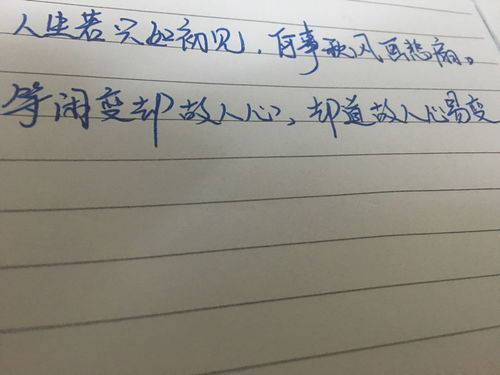 人生若只如初见，何事秋风画悲扇。
等闲变却故人心，却道故人心易变